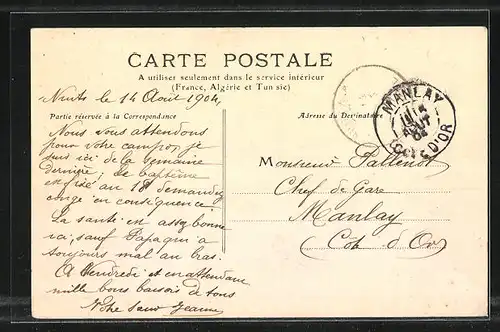 CARTE POSTALE
A utiliser seulement dans le service intérieur
(France, Algérie et Tunisie)
le 14 Août 1904,
Partie réservée à la Correspondance
Adresse du Destinataire
MANLAY
AOUT
04
COTE D'OR
Nous vous attendons
pour votre
suis ici de la semaine
dernière; le baptême
fixé au 18 demandez
congé en conséquence
La santé en assez bonne
ici, sauf Papa qui a
toujours mal au bras.
A Vendredi et en attendant
mille bons baisers de tous
Votre sœur Jeanne
Monsieur Pallenot
Chef de Gare
Manlay
Côte d'Or